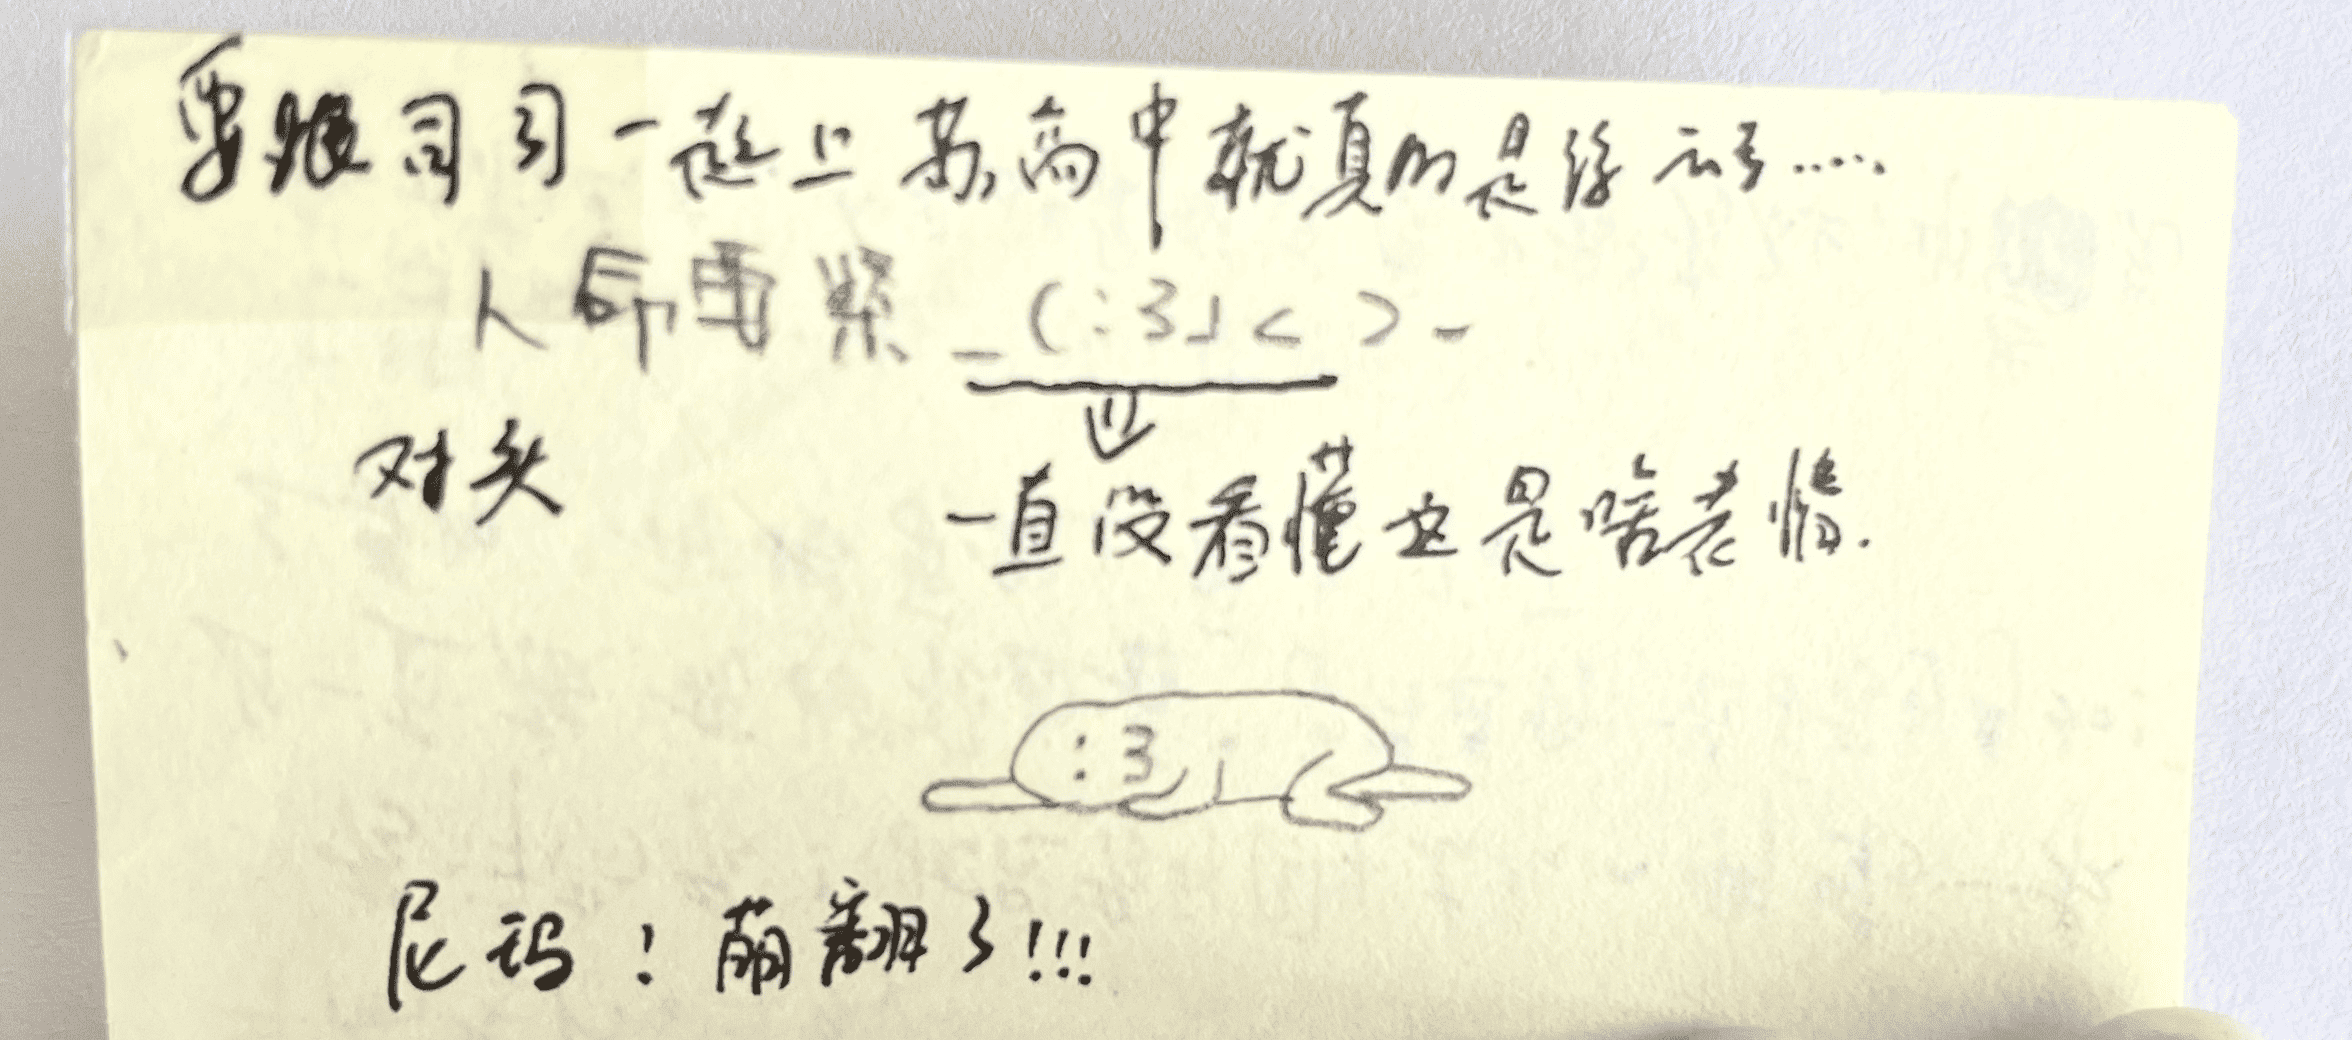 要跟司司一起上苏高中就真的是浮云了.....
人命要紧 _(:3」< )_
对头
一直没看懂这是啥表情.
:3」
尼玛！萌翻了!!!